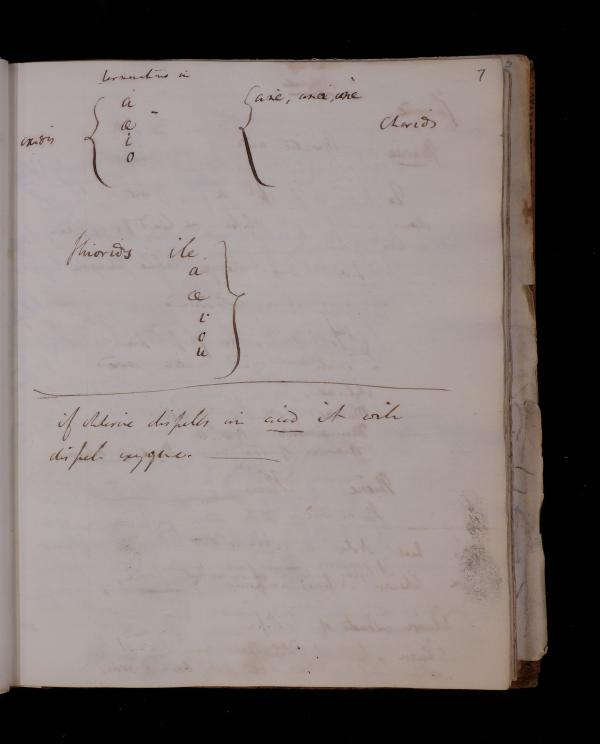 terminating in
7
a
ane, anea, ane
oxides
æ
Chorids
i
o
fluorids ile
a
æ
i
o
u
if chlorine dispels an acid it will
dispel oxygene.